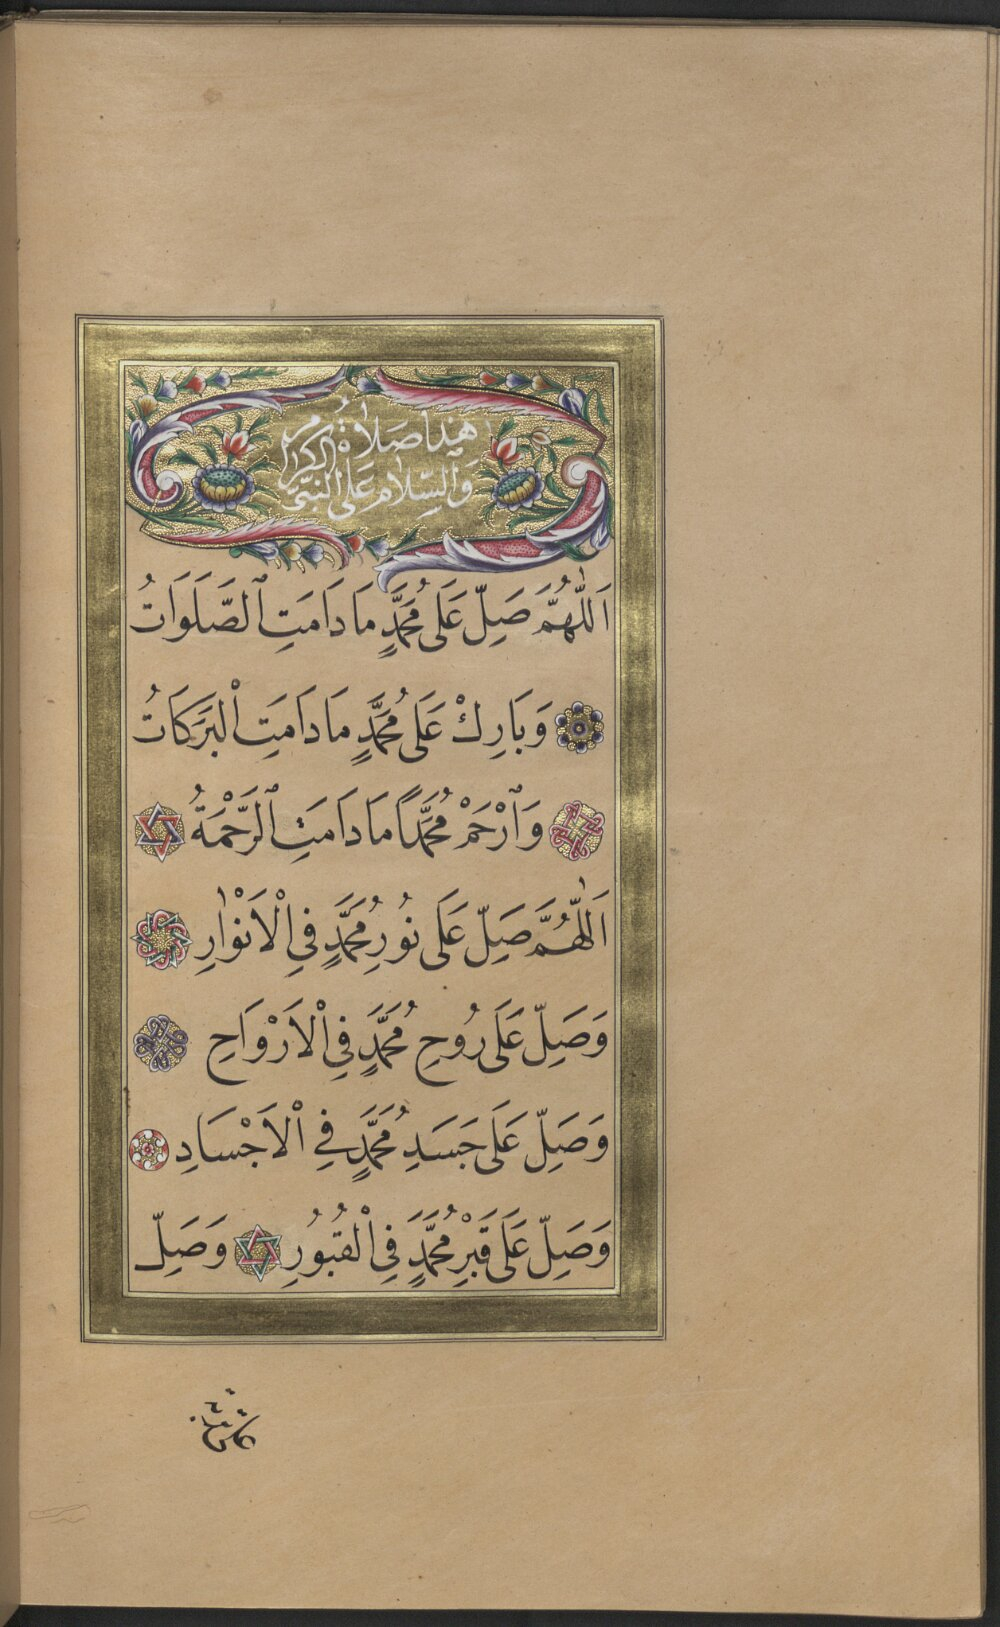 هٰذا صَلاٰةُ الكرام
وَالسّلاٰم عَلى النبيّ
اَللّٰهُمَّ صَلِّ عَلَى مُحَمَّدٍ مَا دَامَتِ ٱلصَّلَوَاتُ
وَبَارِكْ عَلَى مُحَمَّدٍ مَا دَامَتِ اْلبَرَكَاتُ
وَٱرْحَمْ مُحَمَّدًا مَا دَامَتِ ٱلرَّحْمَةُ
اَللّٰهُمَّ صَلِّ عَلَى نُورِ مُحَمَّدٍ فِي اْلاَنْوٰارِ
وَصَلِّ عَلَى رُوحِ مُحَمَّدٍ فِي اْلاَرْوَاحِ
وَصَلِّ عَلَى جَسَدِ مُحَمَّدٍ فِي اْلاَجْسَادِ
وَصَلِّ عَلَى قَبْرِ مُحَمَّدٍ فِي اْلقُبُورِ وَصَلِّ